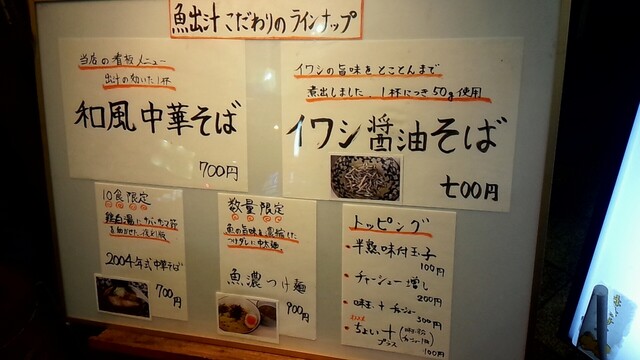 魚出汁こだわりのラインナップ
当店の看板メニュー
出汁の効いた1杯
和風中華そば
700円
イワシの旨味をとことんまで
煮出しました。1杯につき50g使用
イワシ醤油そば
700円
10食限定
2004年式中華そば
700円
数量限定
魚の旨味を濃縮した
つけダレに中太麺
魚濃つけ麺
900円
トッピング
・半熟味付玉子
100円
・チャーシュー増し
200円
・味玉+チャーシュー
300円
・ちょい+
プラス
100円